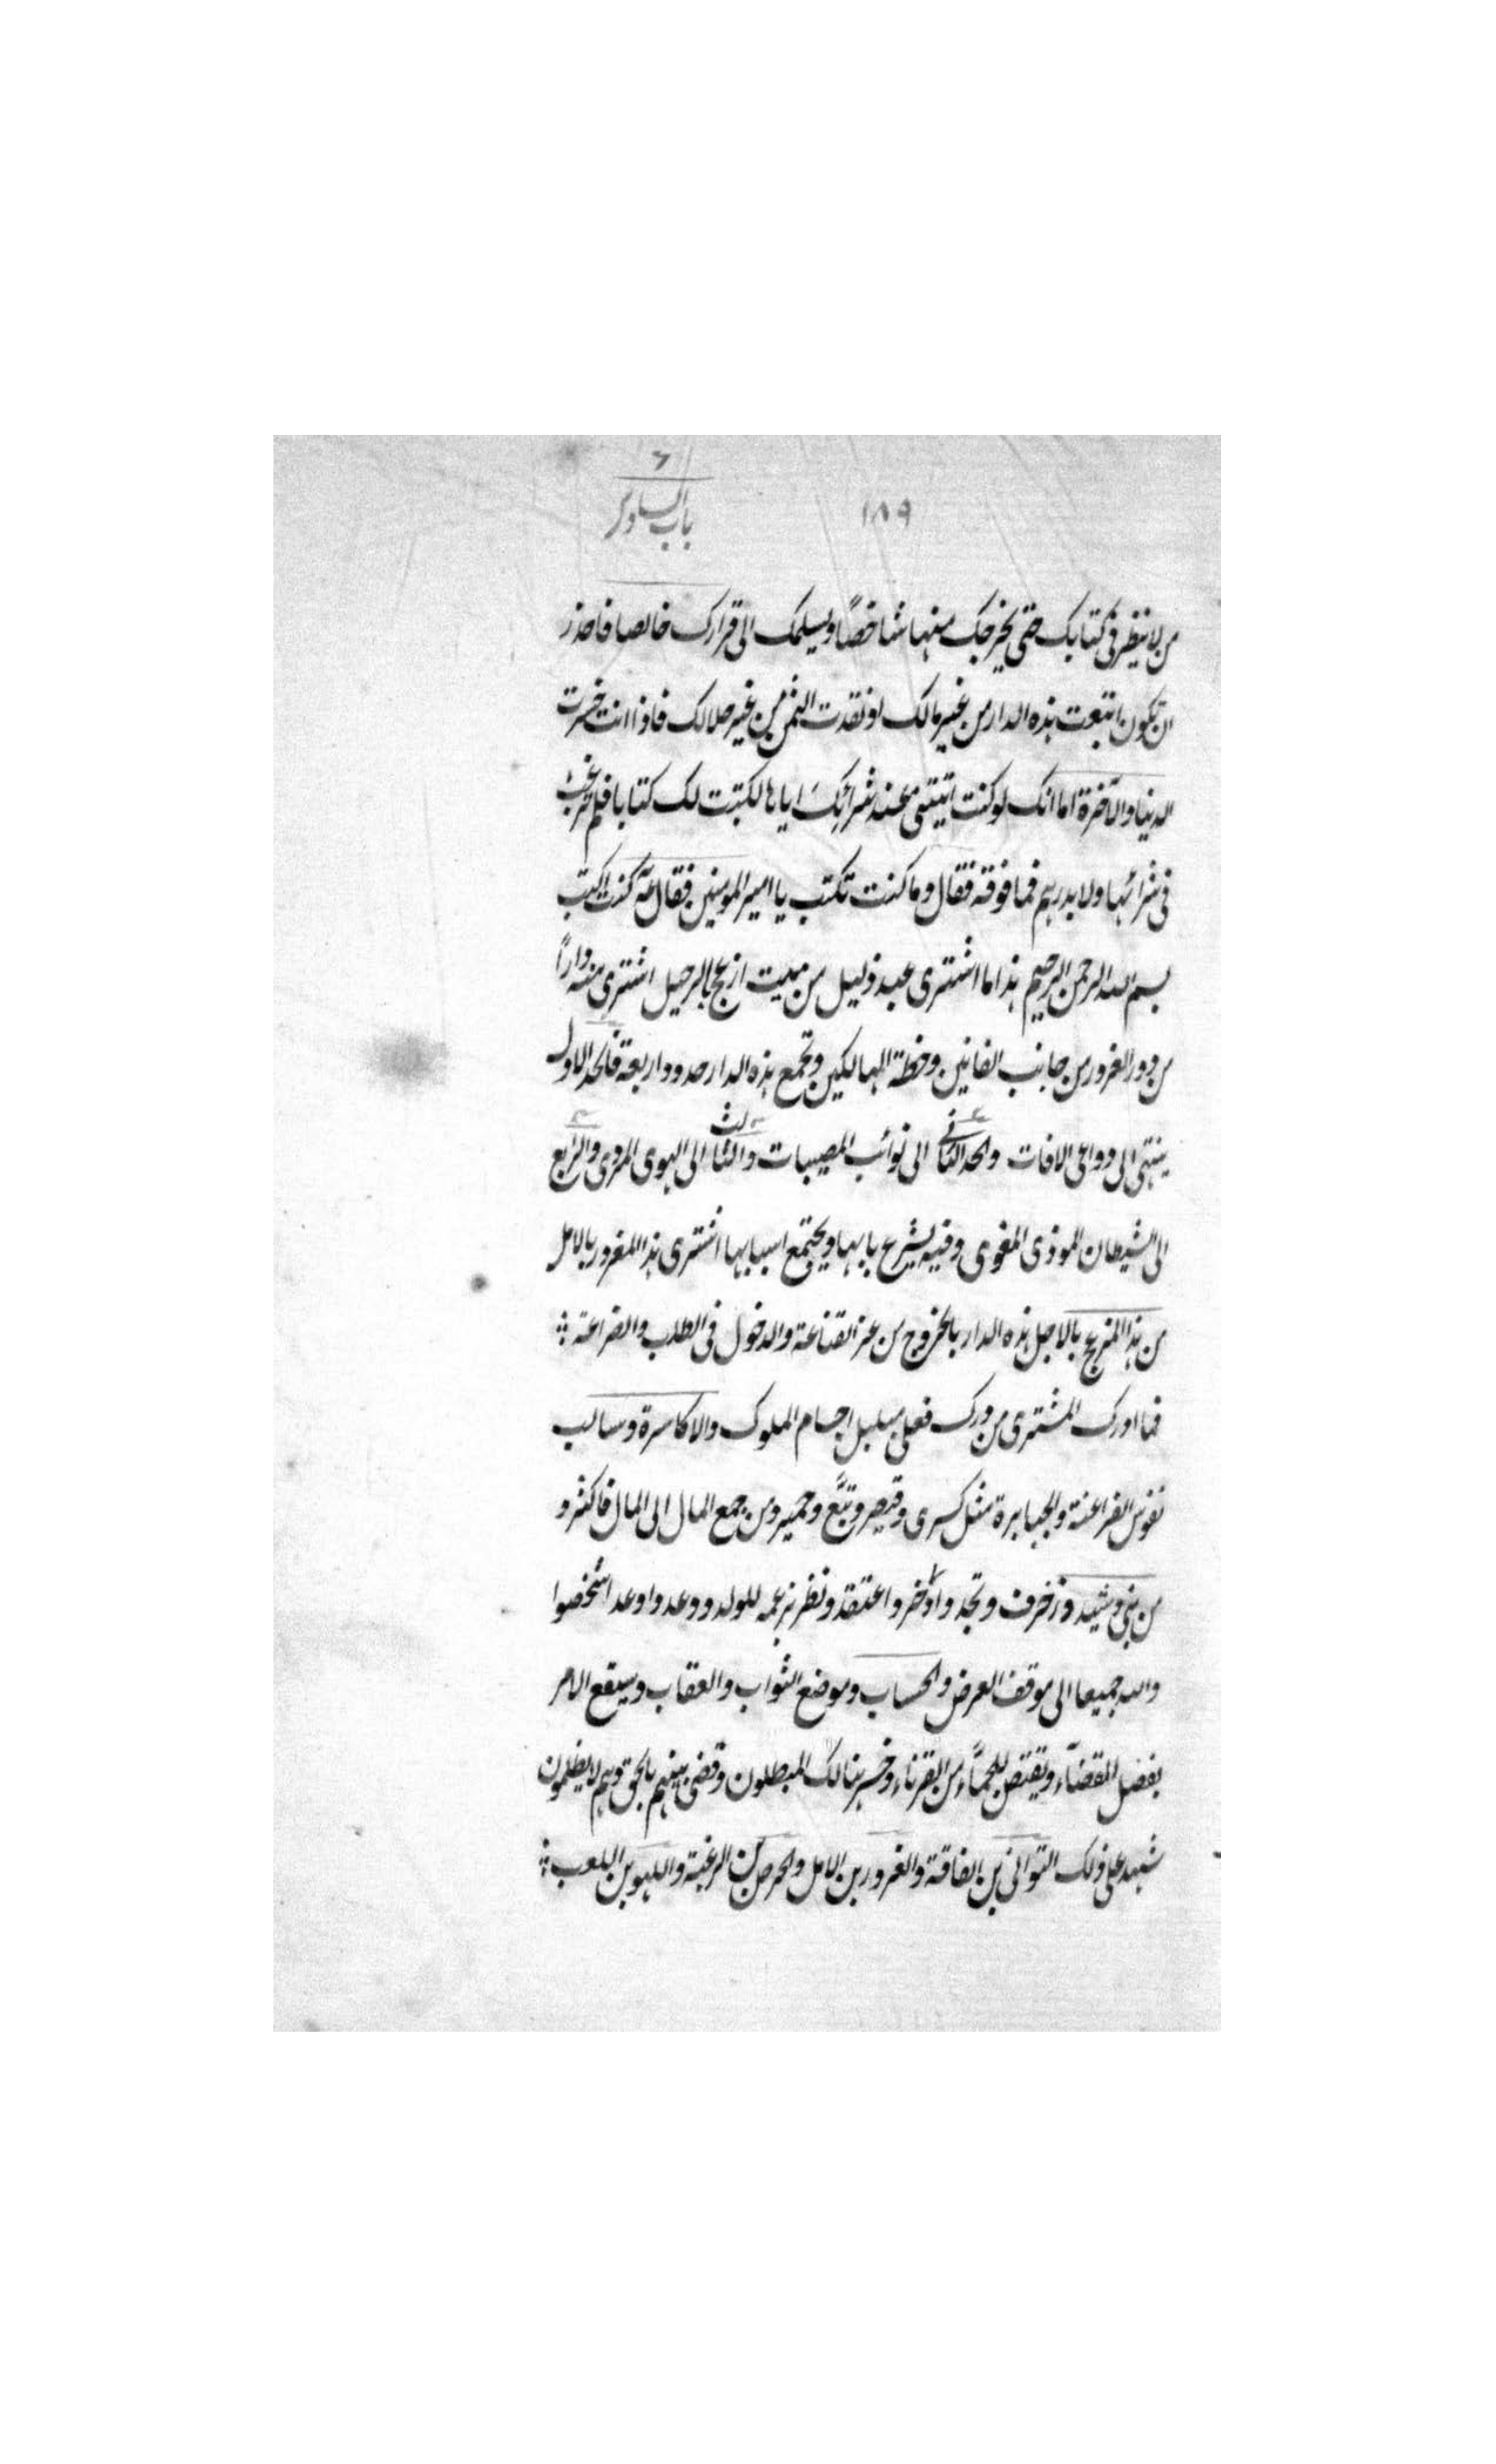 ٦
باب السادس
١٨٩
من لا ينظر فى كتابك حتى يخرجك منها شاخصًا ويسلمك الى قرارك خالصا فاحذر
ان تكون ابتعت هذه الدار من غير مالك او نقدت الثمن من غير حلالك فاذا انت خسرت
الدنيا والآخرة اما انك لو كنت اتيتنى عند شرائك اياها لكتبت لك كتابا فلم ترغب
فى شرائها ولا بدرهم فما فوقه فقال وما كنت تكتب يا امير المومنين فقال كنت اكتب
بسم الله الرحمن الرحيم هذا ما اشترى عبد ذليل من ميت ازعج بالرحيل اشترى منه دارًا
من دور الغرور من جانب الفانين وخطة الهالكين وتجمع هذه الدار حدود اربعة فالحد الاول
ينتهى الى دواعى الافات والحد الثانى الى نوائب المصيبات والثالث الى الهوى المردى والرابع
الى الشيطان الموذى المغوى وفيه يشرع بابها ويجتمع اسبابها اشترى هذا المغرور بالامل
من هذا المزعج بالاجل هذه الدار بالخروج من عز القناعة والدخول فى الطلب والضراعة
فما ادرك المشترى من درك فعلى مبلبل اجسام الملوك والاكاسرة وسالب
نفوس الفراعنة والجبابرة مثل كسرى وقيصر وتبّع وحمير ومن جمع المال الى المال فاكثر و
من بنى وشيد وزخرف ونجد وادخر واعتقد ونظر بزعمه للولد ووعد واوعد اشخصوا
والله جميعا الى موقف العرض والحساب وموضع الثواب والعقاب وسيقع الامر
بفصل القضآء ويقتص للجمّاء من القرناء وخسر هنالك المبطلون وقضى بينهم بالحق وهم لا يظلمون
شهد على ذلك التوانى بن الفاقة والغرور بن الامل والحرص بن الرغبة واللهو بن اللعب